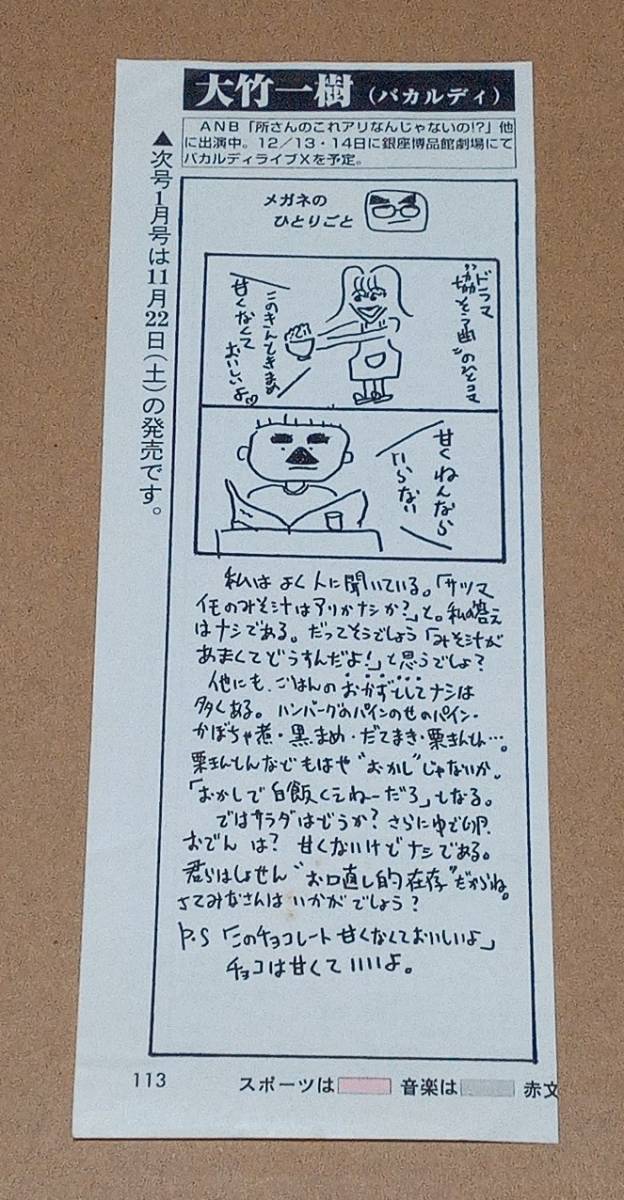 大竹一樹（バカルディ）
ANB「所さんのこれアリなんじゃないの!?」他
に出演中。12／13・14日に銀座博品館劇場にて
バカルディライブXを予定。
▲次号1月号は11月22日（土）の発売です。
メガネの
ひとりごと
ドラマ
のひとコマ
このきんときまめ
甘くなくて
おいしいよ♡
甘くねんなら
いらない
私はよく人に聞いている。「サツマ
イモのみそ汁はアリかナシか？」と。私の答え
はナシである。だってそうでしょう「みそ汁が
あまくてどうすんだよ！」と思うでしょ？
他にも、ごはんのおかずとしてナシは
多くある。ハンバーグのパインのせのパイン・
かぼちゃ煮・黒まめ・だてまき・栗きんとん…。
栗きんとんなどもはや“おかし”じゃないか。
「おかしで白飯くえねーだろ」となる。
ではサラダはどうか？さらにゆで卵。
おでんは？甘くないけどナシである。
君らはしょせん“お口直し的存在”だからね。
さてみなさんはいかがでしょう？
P.S「このチョコレート甘くなくておいしいよ」
チョコは甘くていいよ。
113
スポーツは
音楽は
赤文